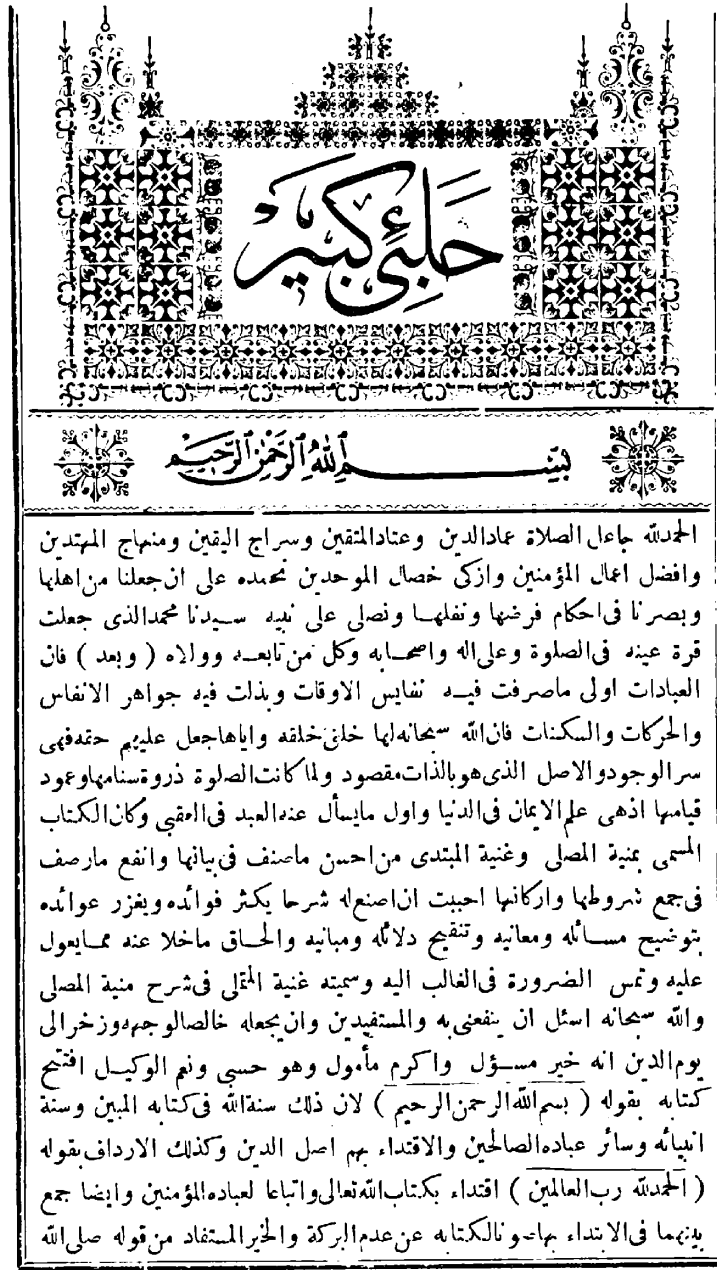 حلبئ كبير
بسم الله الرحمن الرحيم
الحمدلله جاعل الصلاة عمادالدين وعتادالمتقين وسراج اليقين ومنهاج المهتدين
وافضل اعمال المؤمنين وازكى خصال الموحدين نحمده على ان جعلنا من اهلها
وبصرنا فى احكام فرضها ونفلهـا ونصلى على نبيه سـيدنا محمدالذى جعلت
قرة عينه فى الصلوة وعلى اله واصحـابه وكل من تابعـه وولاه ( وبعد ) فان
العبادات اولى ماصرفت فيـه نفايس الاوقات وبذلت فيه جواهر الانفاس
والحركات والسكنات فان الله سبحانه لها خلق خلقه واياها جعل عليهم حتمه فهى
سر الوجود والاصل الذى هو بالذات مقصود ولما كانت الصلوة ذروة سنامها وعمود
قيامها اذهى علم الايمان فى الدنيا واول مايسأل عنه العبد فى العقبى وكان الكتاب
المسمى بمنية المصلى وغنية المبتدى من احسن ماصنف فى بيانها وانفع مارصف
فى جمع شروطها واركانها احببت ان اصنع له شرحا يكثر فوائده ويغزر عوائده
بتوضيح مسـائله ومعانيه وتنقيح دلائله ومبانيه والحـاق ماخلا عنه ممـايعول
عليه وتمس الضرورة فى الغالب اليه وسميته غنية المتملى فى شرح منية المصلى
والله سبحانه اسئل ان ينفعنى به والمستفيدين وان يجعله خالصا لوجهه وزخرالى
يوم الدين انه خير مسـؤل واكرم مأمول وهو حسبى ونعم الوكيـل افتتح
كتابه بقوله ( بسم الله الرحمن الرحيم ) لان ذلك سنة الله فى كتابه المبين وسنة
انبيائه وسائر عباده الصالحين والاقتداء بهم اصل الدين وكذلك الارداف بقوله
( الحمدلله رب العالمين ) اقتداء بكتاب الله تعالى واتباعا لعباده المؤمنين وايضا جمع
بينهما فى الابتداء بها صونا لكتابه عن عدم البركة والخير المستفاد من قوله صلى الله